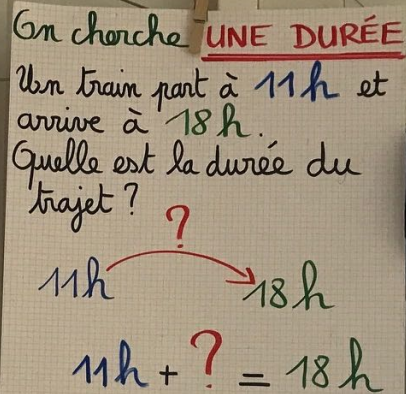 On cherche UNE DURÉE
Un train part à 11h et
arrive à 18h.
Quelle est la durée du
trajet ?
?
11h 18h
11h + ? = 18h